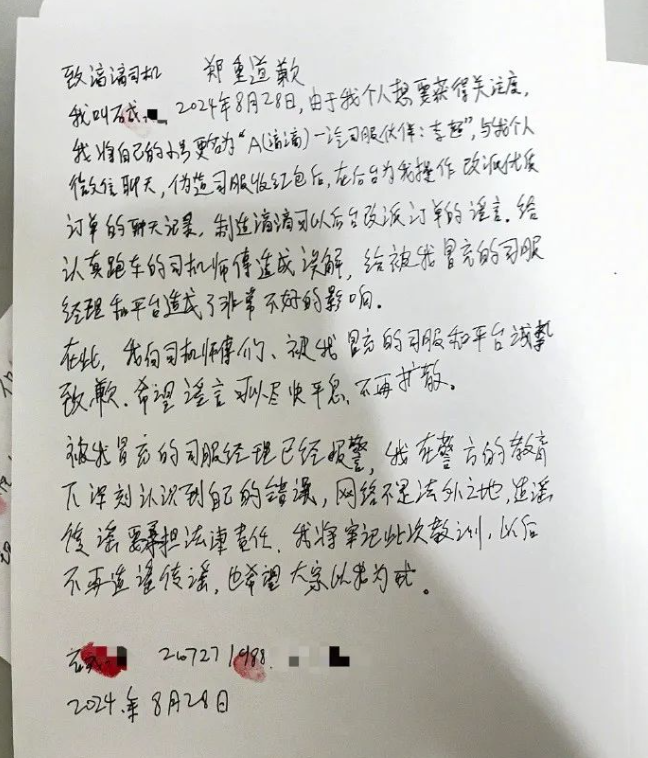 致滴滴司机 郑重道歉
我叫石成 2024年8月28日,由于我个人想要获得关注度,
我将自己的小号更名为"A(滴滴)一泠司服伙伴:李超",与我个人
微信聊天,伪造司服收红包后,在后台为我操作改派优质
订单的聊天记录,制造滴滴可以后台改派订单的谣言.给
认真跑车的司机师傅造成误解,给被我冒充的司服
经理和平台造成了非常不好的影响.
在此,我向司机师傅们、被我冒充的司服和平台诚挚
致歉.希望谣言可以尽快平息、不再扩散。
被我冒充的司服经理已经报警,我在警方的教育
下深刻认识到自己的错误,网络不是法外之地,造谣
传谣要承担法律责任.我将牢记此次教训,以后
不再造谣传谣,也希望大家以我为戒。
267271988
2024年8月28日